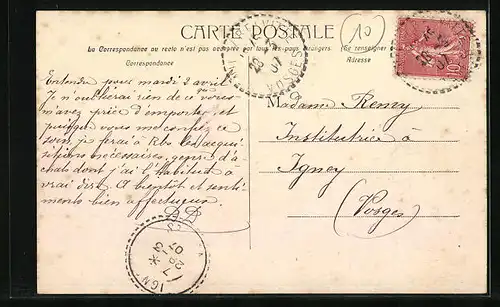 CARTE POSTALE
10
La Correspondance au recto n'est pas acceptée par tous les pays étrangers (Se renseigner
Correspondance
Adresse
Entendu pour mardi 2 avril.
Je n'oublierai rien de ce que vous
m'avez priée d'emporter, et
puisque vous me confiez ce
soin, je ferai à Rbs les acqui
sitions nécessaires, genre d'a-
chats dont j'ai l'habitude à
vrai dire. A bientôt et senti
ments bien affectueux.
DD
Madame Remy
Institutrice à
Igney
(Vosges)
VOSGES
28
07
10
IGN